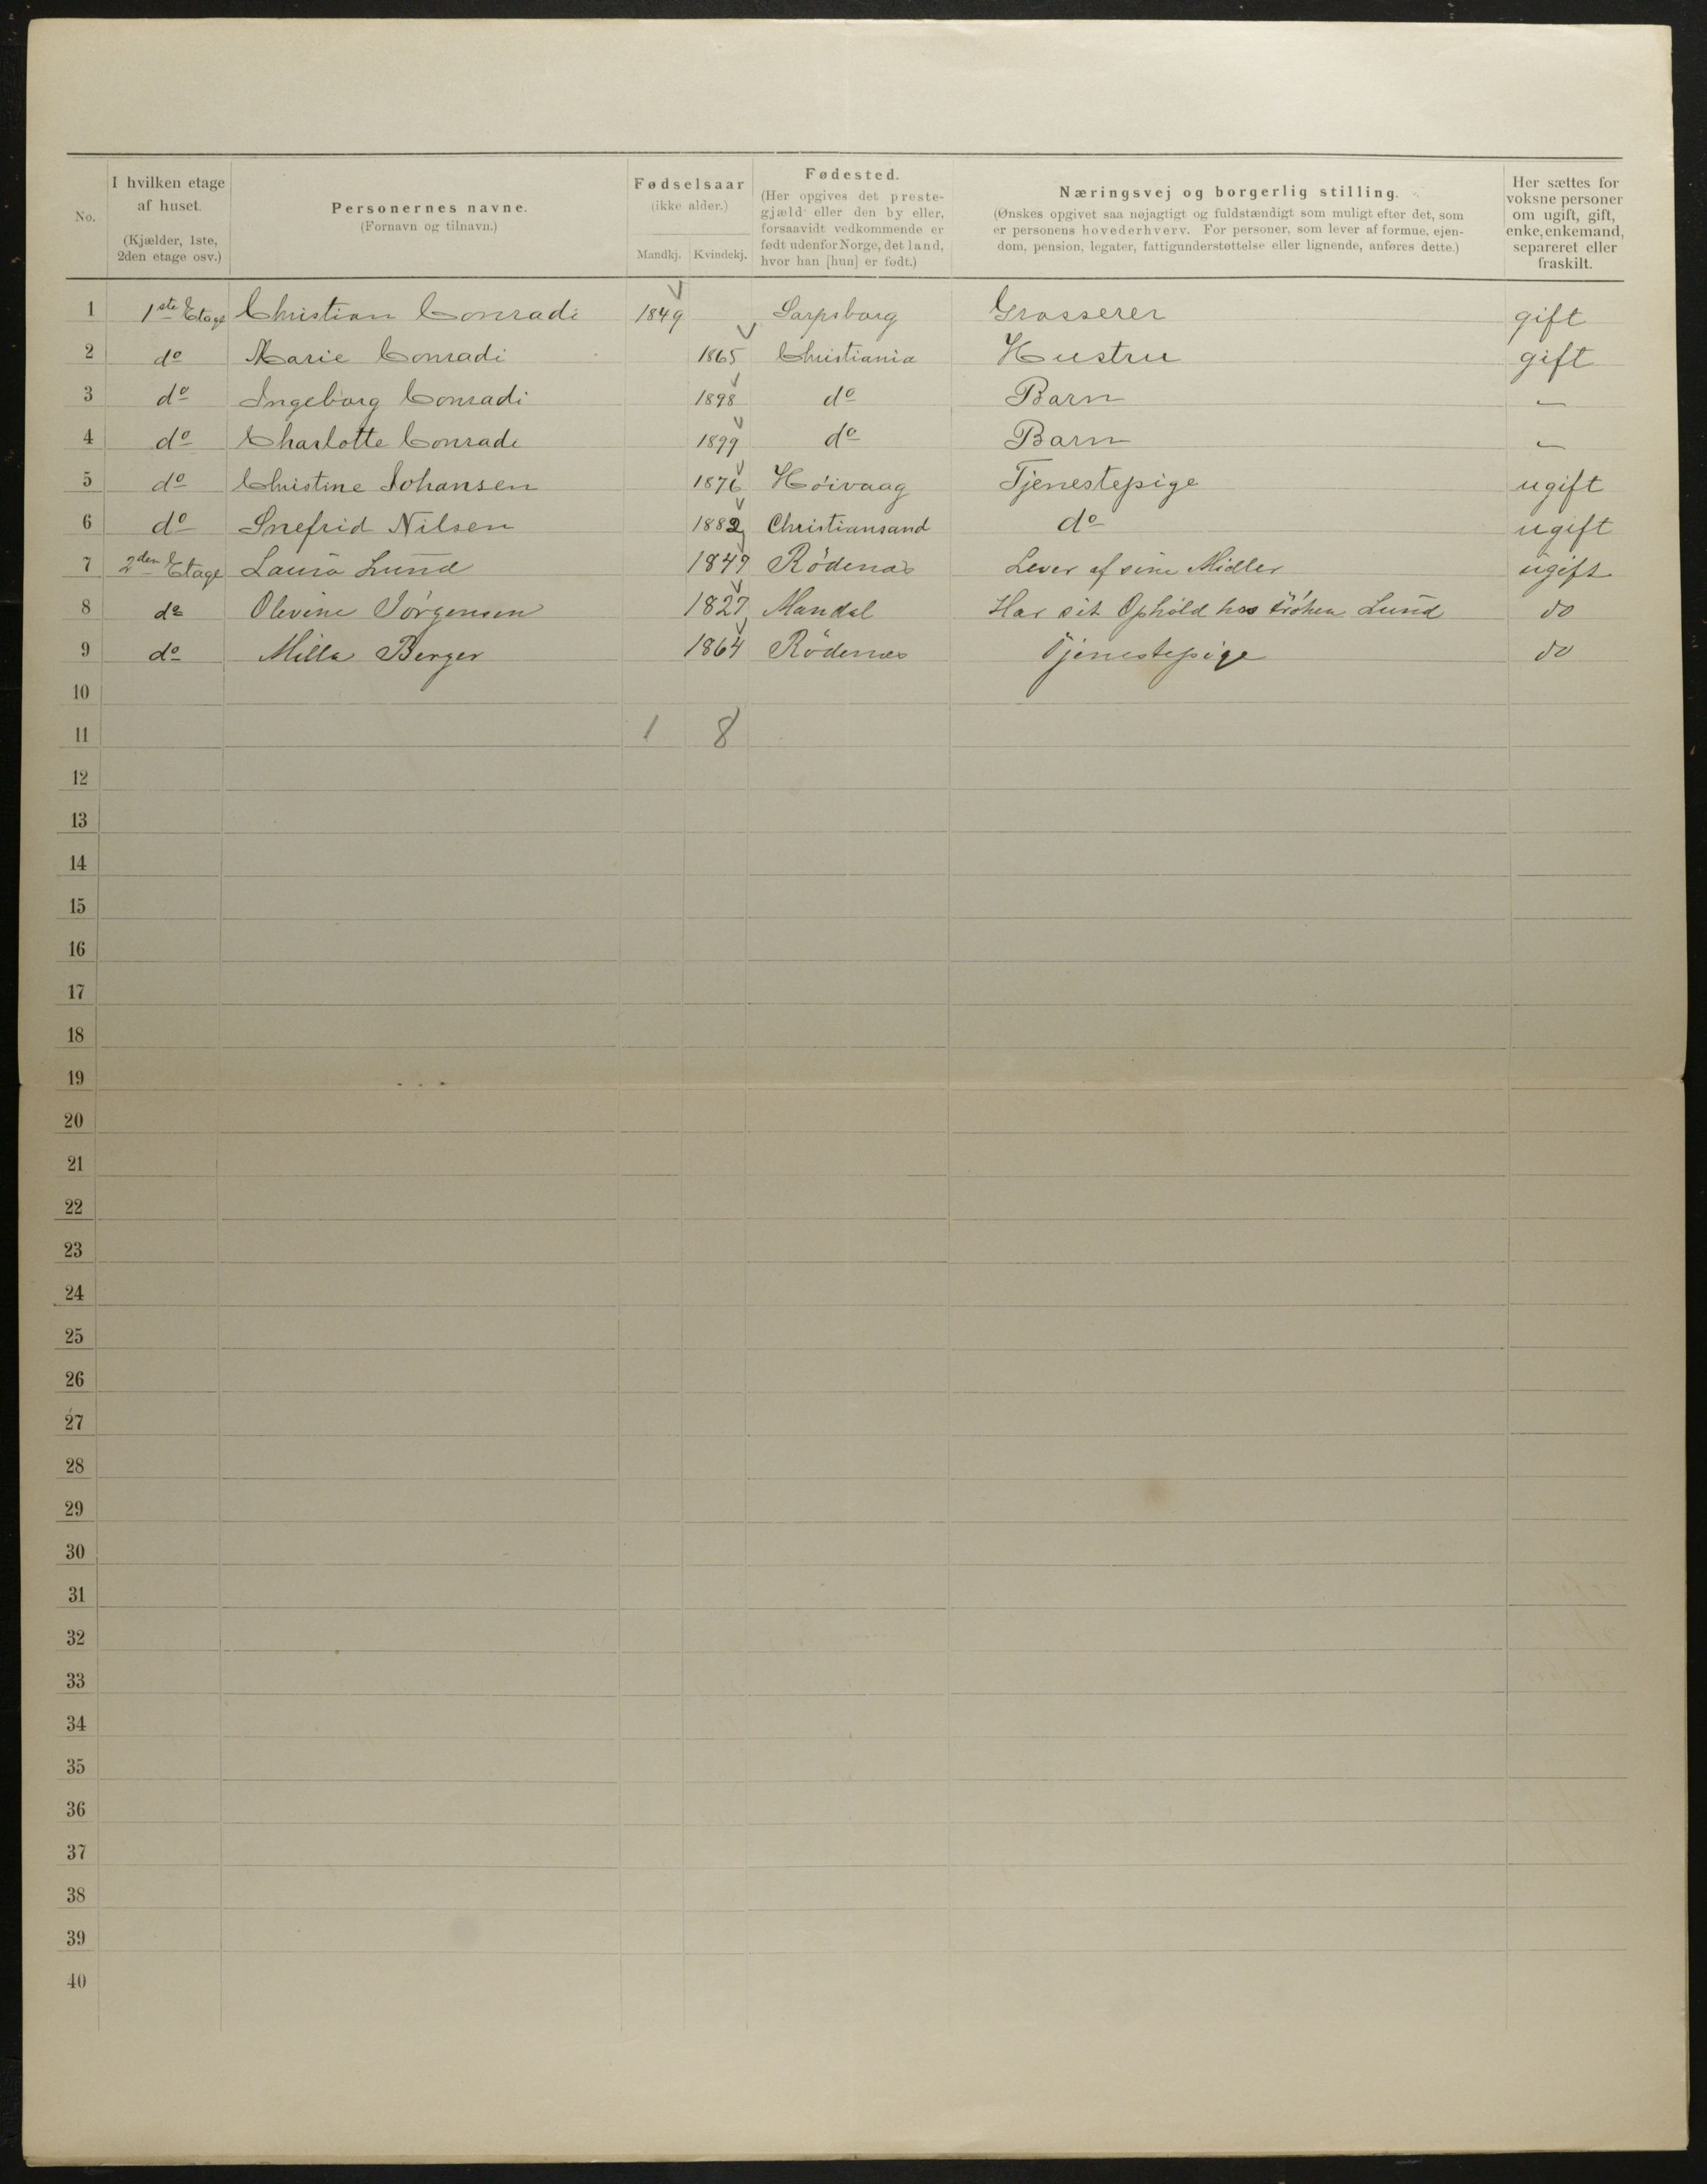 No.
I hvilken etage af huset. (Kjælder, 1ste, 2den etage osv.)
Personernes navne. (Fornavn og tilnavn.)
Fødselsaar (ikke alder.)
Mandkj. Kvindekj.
Fødested. (Her opgives det prestegjæld eller den by eller, forsaavidt vedkommende er født udenfor Norge, det land, hvor han [hun] er født.)
Næringsvej og borgerlig stilling. (Ønskes opgivet saa nøjagtigt og fuldstændigt som muligt efter det, som er personens hovederhverv. For personer, som lever af formue, ejendom, pension, legater, fattigunderstøttelse eller lignende, anføres dette.)
Her sættes for voksne personer om ugift, gift, enke, enkemand, separeret eller fraskilt.
1 1ste Etage Christian Conradi 1849 Sarpsborg Grosserer gift
2 do Marie Conradi 1865 Christiania Hustru gift
3 do Ingeborg Conradi 1898 do Barn -
4 do Charlotte Conradi 1899 do Barn -
5 do Christine Johansen 1876 Høivaag Tjenestepige ugift
6 do Snefrid Nilsen 1882 Christiansand do ugift
7 2den Etage Laura Lund 1847 Rødenæs Lever af sine Midler ugift
8 do Olevine Jørgensen 1827 Mandal Har sit Ophold hos Frøken Lund do
9 do Milla Berger 1864 Rødenæs Tjenestepige do
10
11 1 8
12
13
14
15
16
17
18
19
20
21
22
23
24
25
26
27
28
29
30
31
32
33
34
35
36
37
38
39
40